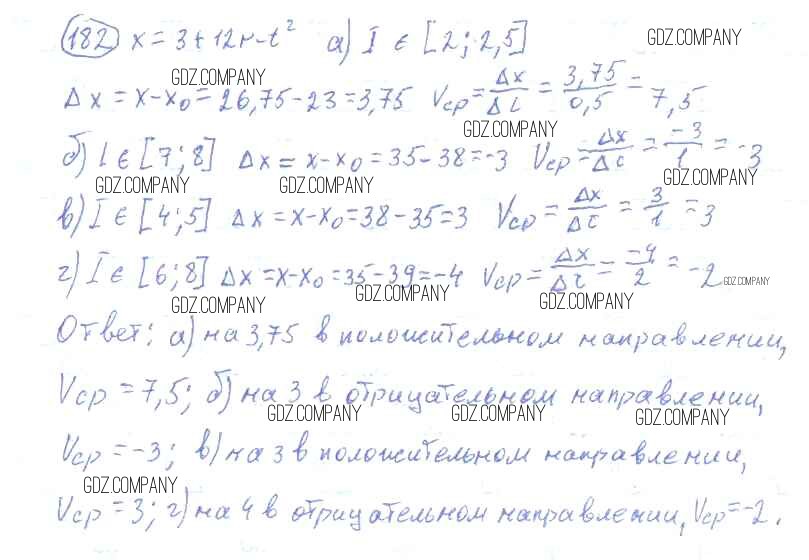 182 x = 3 + 12t - t² а) I ∈ [2; 2,5] GDZ.COMPANY
GDZ.COMPANY
Δx = x - x₀ = 26,75 - 23 = 3,75 Vср = Δx/Δt = 3,75/0,5 = 7,5
GDZ.COMPANY
б) I ∈ [7; 8] Δx = x - x₀ = 35 - 38 = -3 Vср = Δx/Δt = -3/1 = -3
GDZ.COMPANY GDZ.COMPANY GDZ.COMPANY
в) I ∈ [4; 5] Δx = x - x₀ = 38 - 35 = 3 Vср = Δx/Δt = 3/1 = 3
г) I ∈ [6; 8] Δx = x - x₀ = 35 - 39 = -4 Vср = Δx/Δt = -4/2 = -2 GDZ.COMPANY
GDZ.COMPANY GDZ.COMPANY GDZ.COMPANY
Ответ: а) на 3,75 в положительном направлении,
Vср = 7,5; б) на 3 в отрицательном направлении,
GDZ.COMPANY GDZ.COMPANY GDZ.COMPANY
Vср = -3; в) на 3 в положительном направлении,
GDZ.COMPANY
Vср = 3; г) на 4 в отрицательном направлении, Vср = -2.